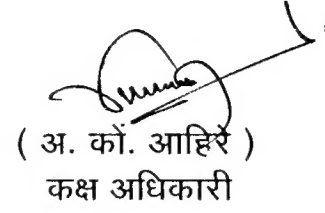 ( अ. कों. आहिरे )
कक्ष अधिकारी